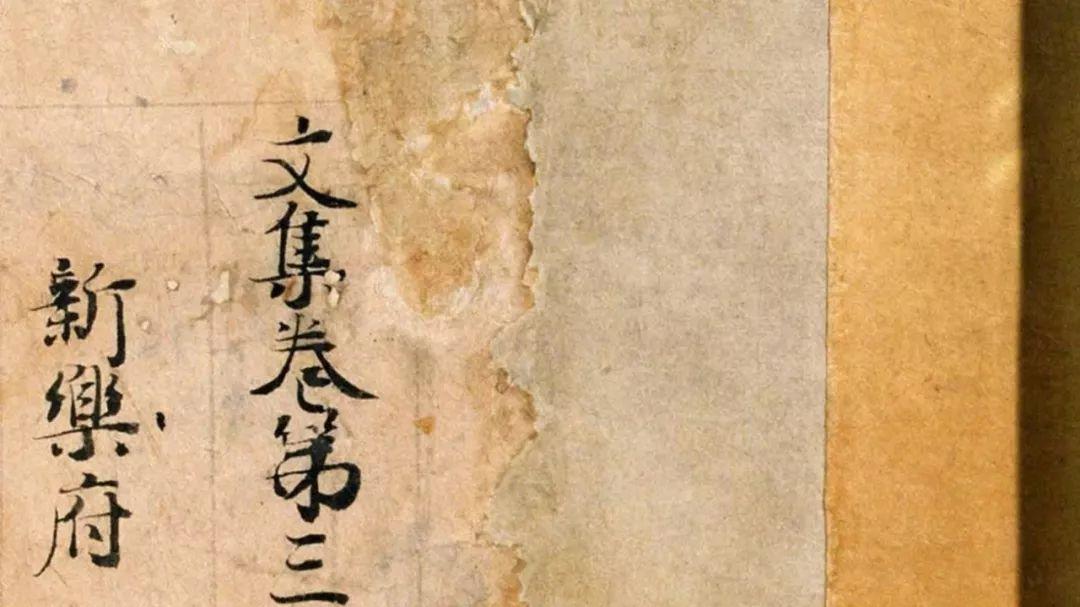 文集卷第三
新樂府